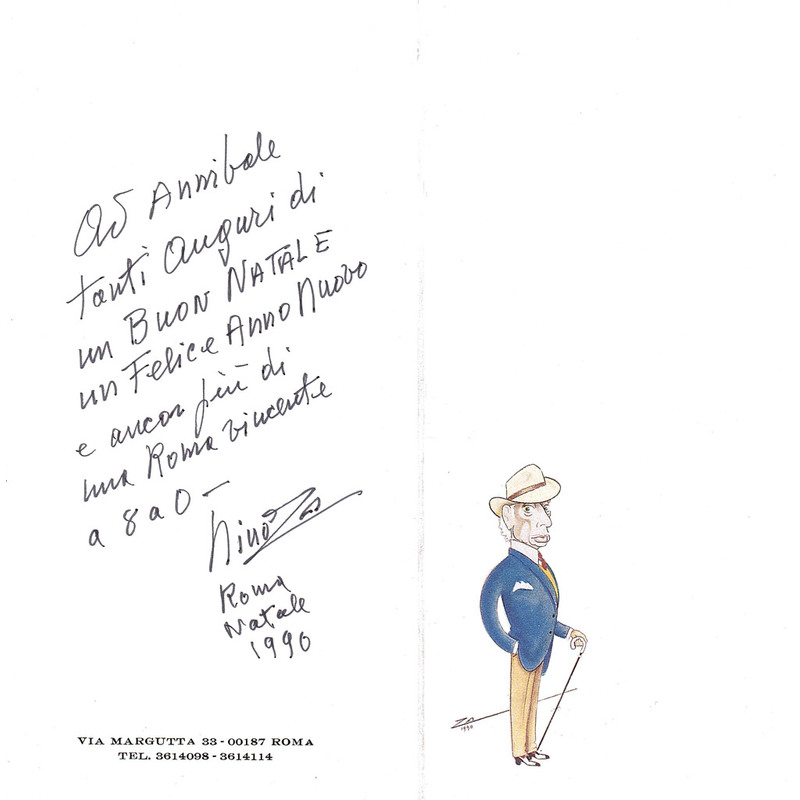 Ad Annibale
tanti Auguri di
un BUON NATALE
un Felice Anno Nuovo
e ancor più di
una Roma vincente
a 8 a 0 –
Nino Za
Roma
Natale
1990
VIA MARGUTTA 33 - 00187 ROMA
TEL. 3614098 - 3614114
Za
1990